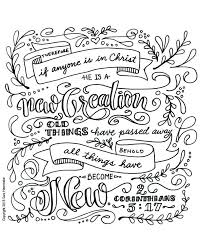 THEREFORE
if anyone is in Christ
HE IS A
new Creation
OLD
THINGS have passed away
BEHOLD
all things have
BECOME
New.
2
CORINTHIANS
5:17